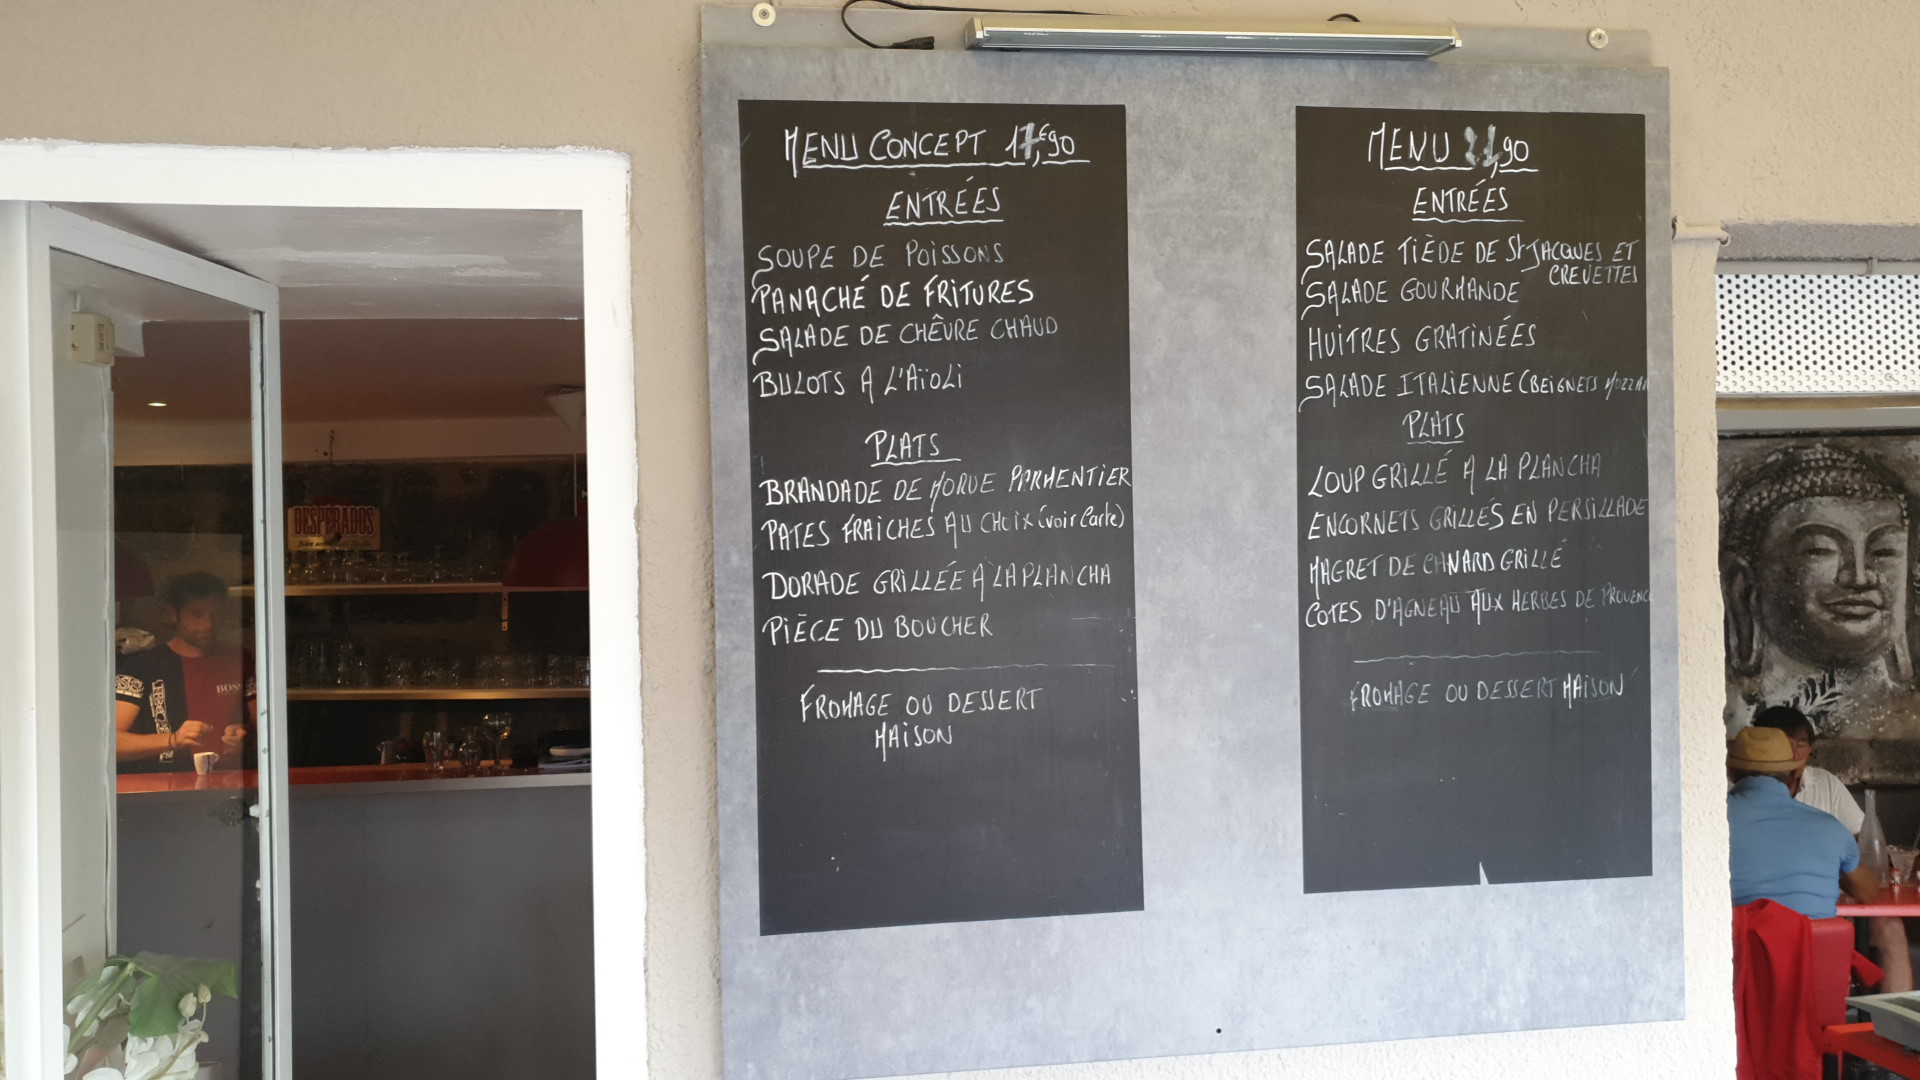 MENU CONCEPT 17,€90
ENTRÉES
SOUPE DE POISSONS
PANACHÉ DE FRITURES
SALADE DE CHÊVRE CHAUD
BULOTS A L'AÏOLI
PLATS
BRANDADE DE MORUE PARMENTIER
PATES FRAICHES AU CHOIX (voir Carte)
DORADE GRILLÉE A LA PLANCHA
PIÈCE DU BOUCHER
FROMAGE OU DESSERT
MAISON
MENU ,90
ENTRÉES
SALADE TIÈDE DE St JACQUES ET
CREVETTES
SALADE GOURMANDE
HUITRES GRATINÉES
SALADE ITALIENNE (BEIGNETS MOZZA
PLATS
LOUP GRILLÉ A LA PLANCHA
ENCORNETS GRILLÉS EN PERSILLADE
MAGRET DE CANARD GRILLÉ
COTES D'AGNEAU AUX HERBES DE PROVENC
FROMAGE OU DESSERT MAISON
DESPERADOS
BOSS